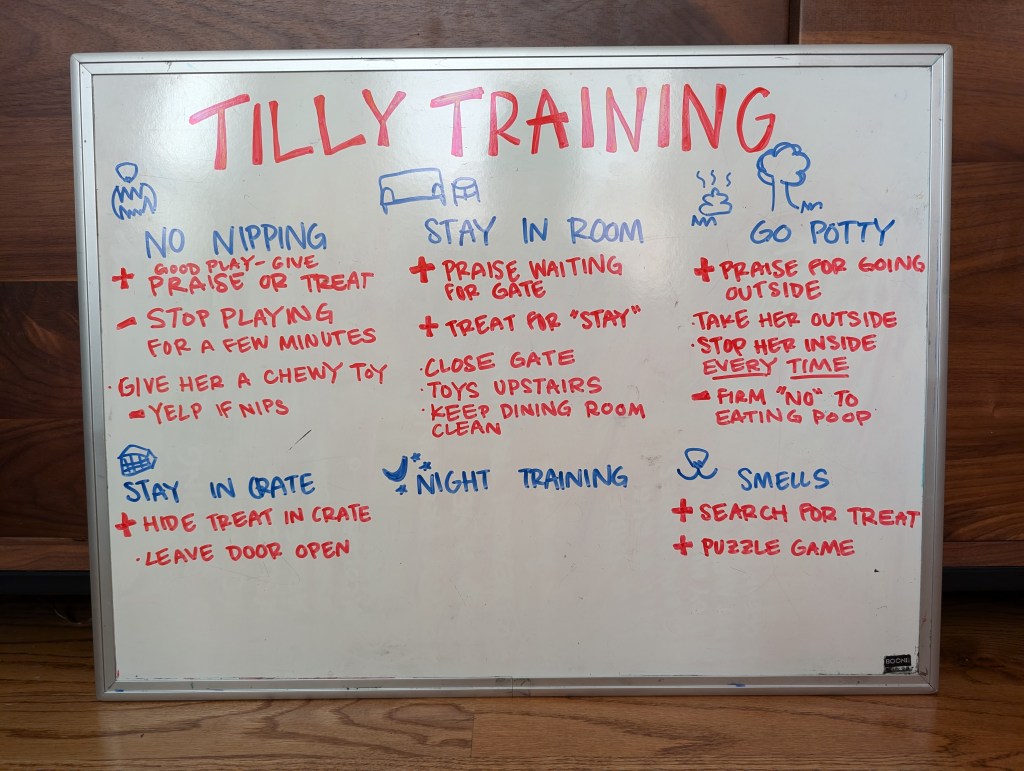 TILLY TRAINING
NO NIPPING
+ GOOD PLAY - GIVE
PRAISE OR TREAT
- STOP PLAYING
FOR A FEW MINUTES
· GIVE HER A CHEWY TOY
- YELP IF NIPS
STAY IN ROOM
+ PRAISE WAITING
FOR GATE
+ TREAT FOR "STAY"
· CLOSE GATE
· TOYS UPSTAIRS
· KEEP DINING ROOM
CLEAN
GO POTTY
+ PRAISE FOR GOING
OUTSIDE
· TAKE HER OUTSIDE
· STOP HER INSIDE
EVERY TIME
- FIRM "NO" TO
EATING POOP
STAY IN CRATE
+ HIDE TREAT IN CRATE
· LEAVE DOOR OPEN
NIGHT TRAINING
SMELLS
+ SEARCH FOR TREAT
+ PUZZLE GAME
BOONE